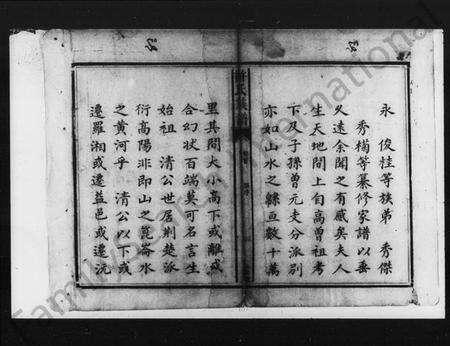 永 俊桂等族弟 秀傑
秀橘等纂修家譜以垂
久遠余聞之有感矣夫人
生天地間上自高曾祖考
下及子孫曾元支分派別
亦如山水之綿亘數十萬
里其間大小高下或離或
合幻狀百端莫可名言生
始祖 清公世居荆楚派
衍高陽非即山之崑崙水
之黄河乎 清公以下或
遷羅湘或遷益邑或遷沅
FamilySearch International